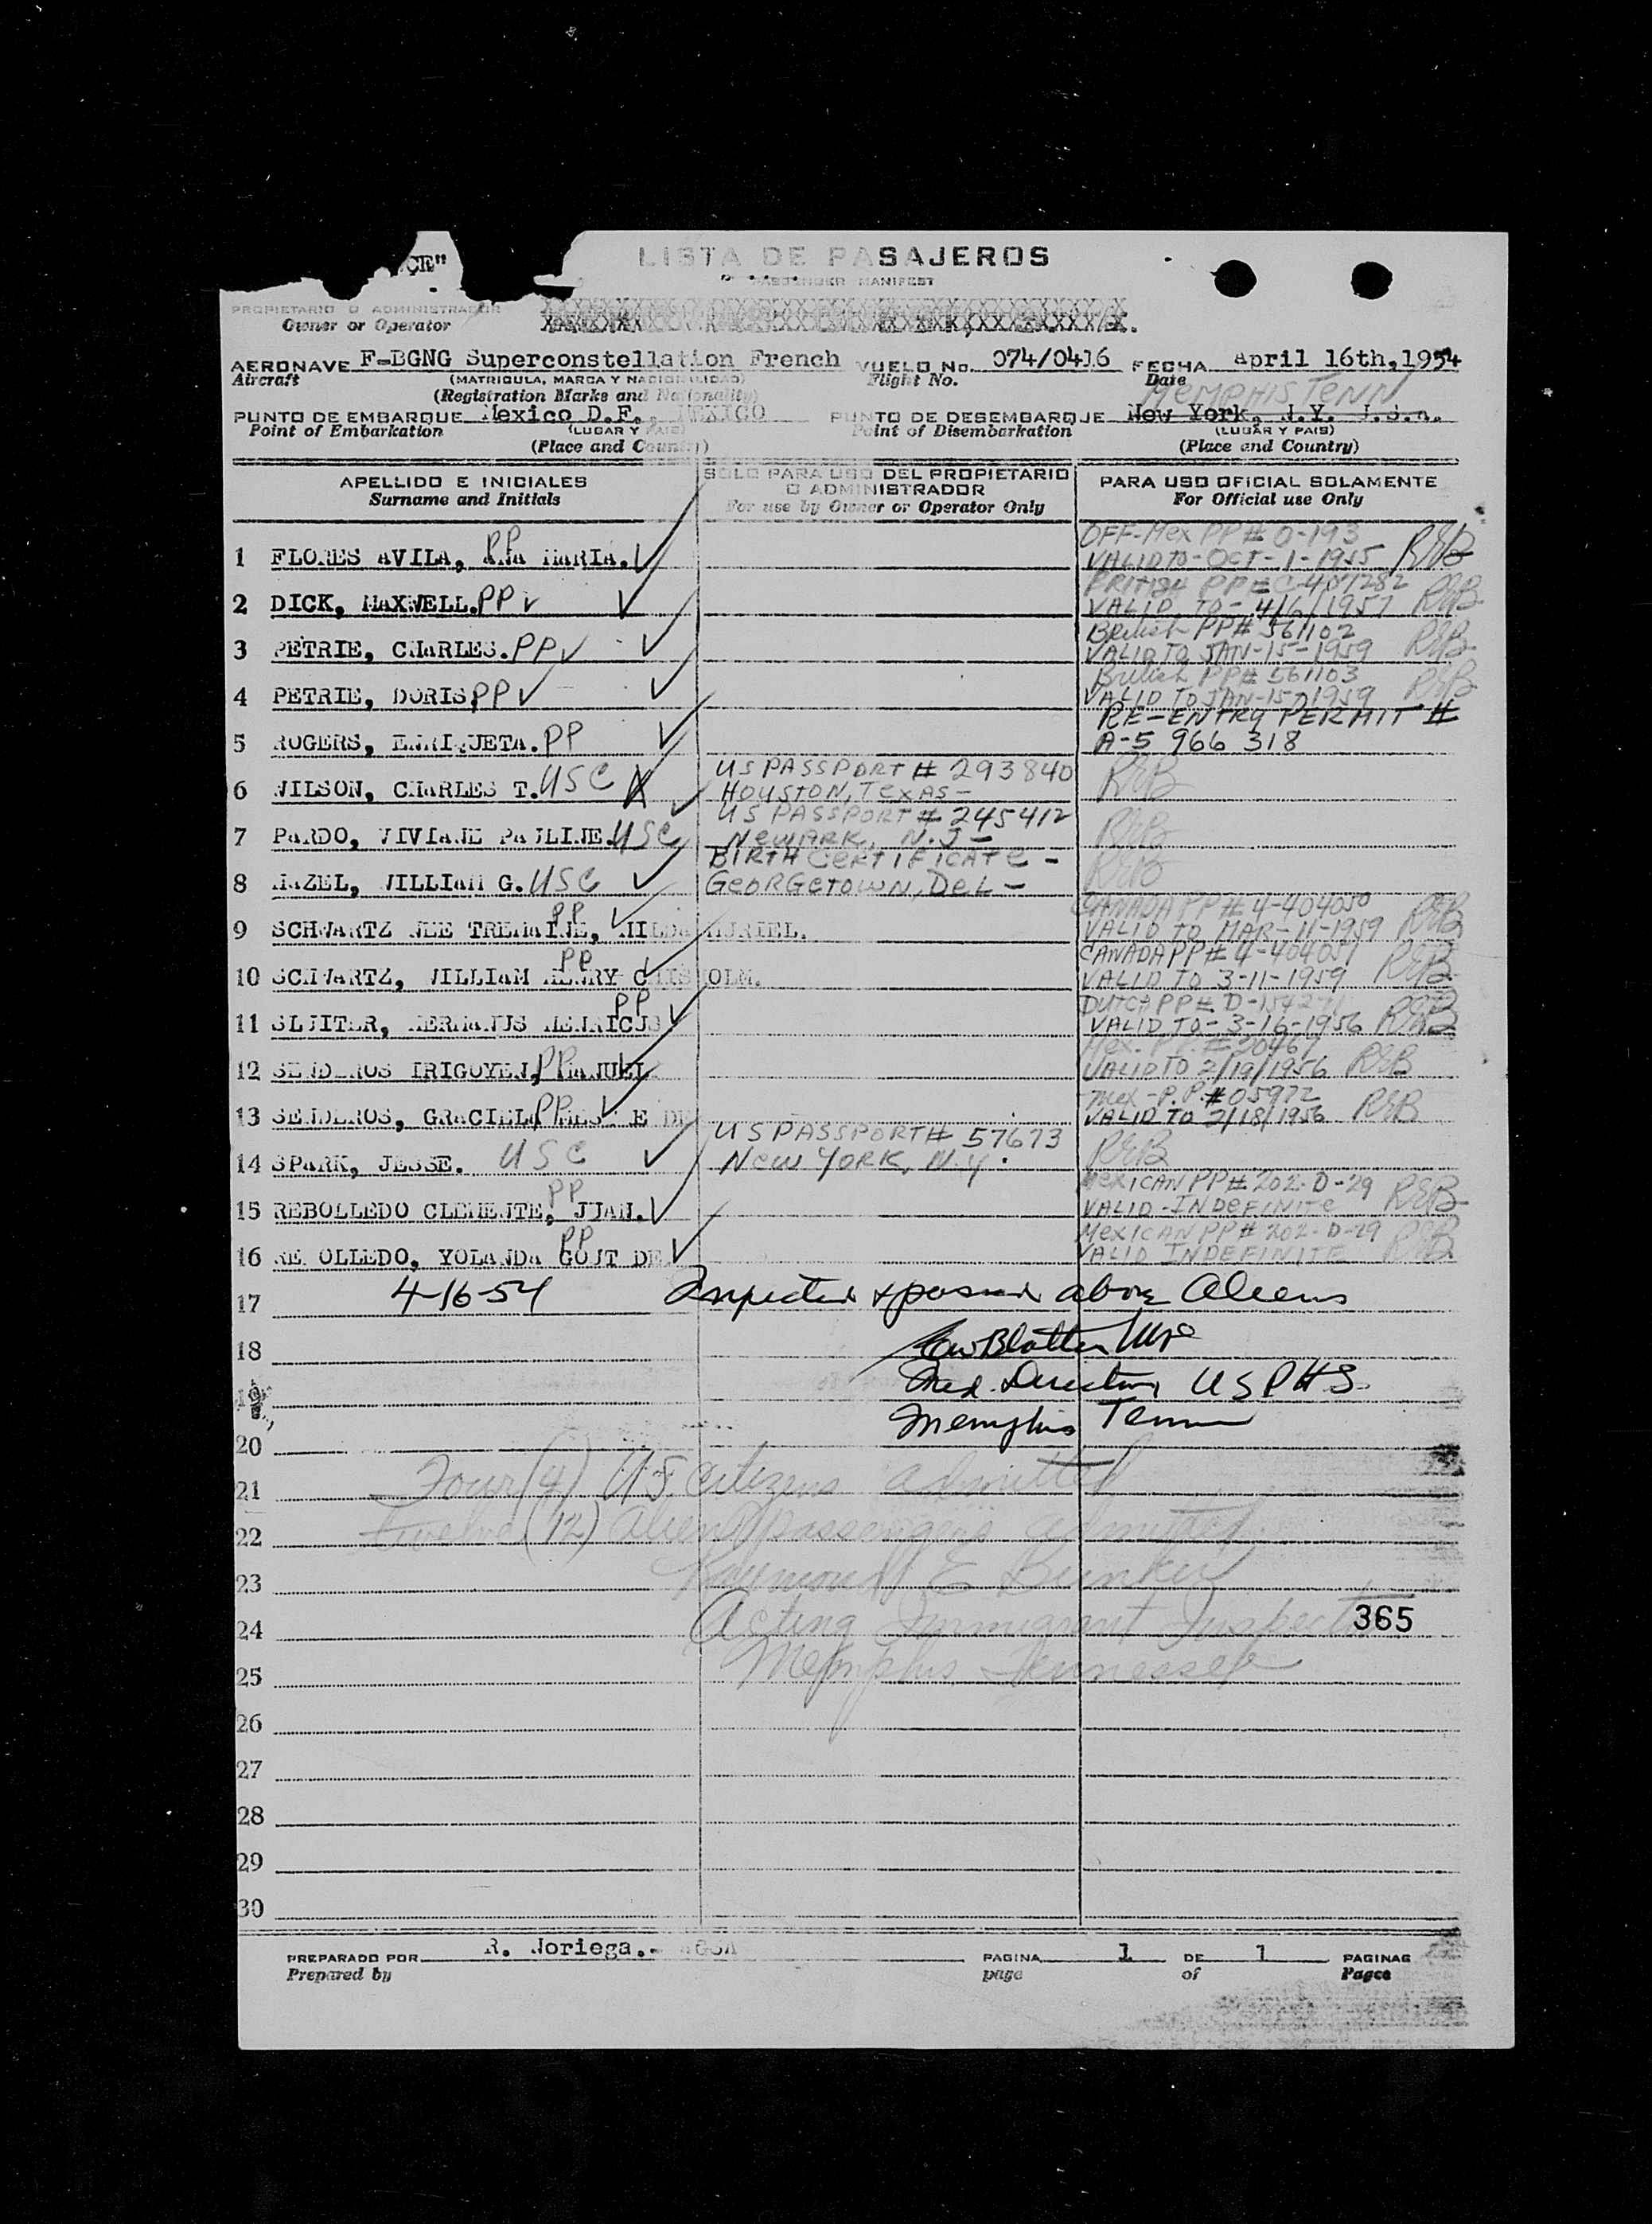 CE"
LISTA DE PASAJEROS
PASSENGER MANIFEST
PROPIETARIO O ADMINISTRADOR
Owner or Operator
AERONAVE F-BGNG Superconstellation French VUELO No. 074/0416 FECHA april 16th,1954
Aircraft (MATRICULA, MARCA Y NACIONALIDAD) Flight No. Date
(Registration Marks and Nationality) MEMPHIS TENN
PUNTO DE EMBARQUE Mexico D.F., MEXICO PUNTO DE DESEMBARQUE New York, N.Y. U.S.A.
Point of Embarkation (LUGAR Y PAIS) Point of Disembarkation (LUGAR Y PAIS)
(Place and Country) (Place and Country)
APELLIDO E INICIALES SOLO PARA USO DEL PROPIETARIO PARA USO OFICIAL SOLAMENTE
Surname and Initials O ADMINISTRADOR For Official use Only
For use by Owner or Operator Only
OFF-Mex PP # 0-193
1 FLORES AVILA, ANA MARIA. PP VALID TO - OCT-1-1955 REB
BRITISH PP#
2 DICK, MAXWELL. PP VALID TO - 4/6/1957 REB
British PP# 561102
3 PETRIE, CHARLES. PP VALID TO JAN-15-1959 REB
British PP# 561103
4 PETRIE, DORIS. PP VALID TO JAN-15-1959 REB
RE-ENTRY PERMIT #
5 ROGERS, ENRIQUETA. PP A-5 966 318
US PASSPORT # 293840
6 WILSON, CHARLES T. USC HOUSTON, TEXAS- REB
US PASSPORT # 245412
7 PARDO, VIVIANE PAULINE. USC NEWARK, N.J- REB
BIRTH CERTIFICATE -
8 HAZEL, WILLIAM G. USC GEORGETOWN, DEL- REB
CANADA PP# 4-404050
9 SCHWARTZ NEE TREMAINE, HILDA MURIEL. PP VALID TO MAR-11-1959 REB
CANADA PP# 4-404051
10 SCHWARTZ, WILLIAM HENRY CHISHOLM. PP VALID TO 3-11-1959 REB
DUTCH PP# D-
11 SLUITER, HERMANUS HENRICUS PP VALID TO - 3-16-1956 REB
Mex. P.P. #
12 SENDEROS IRIGOYEN, MANUEL. PP VALID TO 2/19/1956 REB
Mex - P.P. # 05972
13 SENDEROS, GRACIELA PP DE VALID TO 2/18/1956 REB
US PASSPORT# 57673
14 SPARK, JESSE. USC NEW YORK, N.Y. REB
MEXICAN PP# 202-D-29
15 REBOLLEDO CLEMENTE, JUAN. PP VALID-INDEFINITE REB
MEXICAN PP# 202-D-29
16 RE OLLEDO, YOLANDA GOUT DE PP VALID INDEFINITE REB
17 4-16-54 Inspected & passed above Aliens
18 Blatter
19 Med. Director USPHS.
20 Memphis Tenn
21 Four (4) U.S. citizens admitted
22 Twelve (12) Alien passengers admitted.
23 Raymond E Bunker
24 Acting Immigrant Inspector 365
25 Memphis, Tennessee
26
27
28
29
30
PREPARADO POR R. Noriega.- PAGINA 1 DE 1 PAGINAS
Prepared by page of Pages